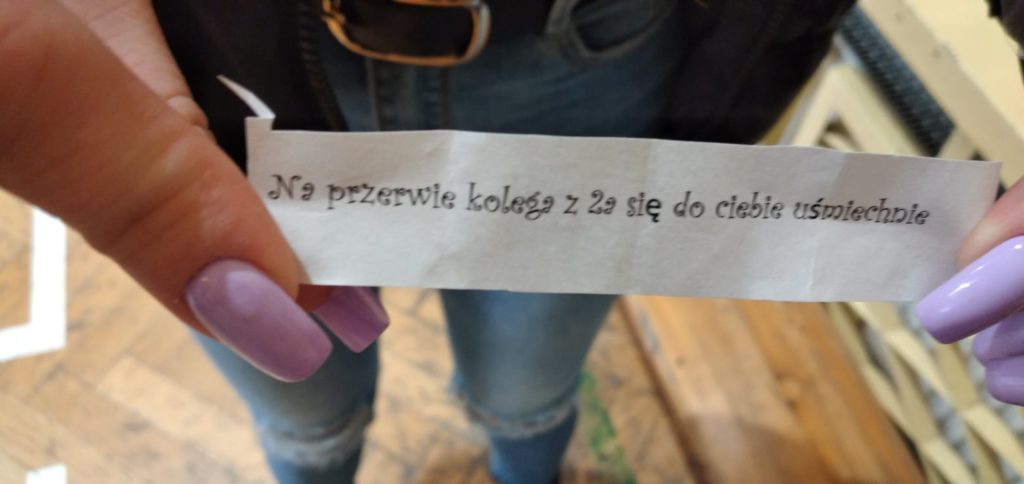 Na przerwie kolega z 2a się do ciebie uśmiechnie